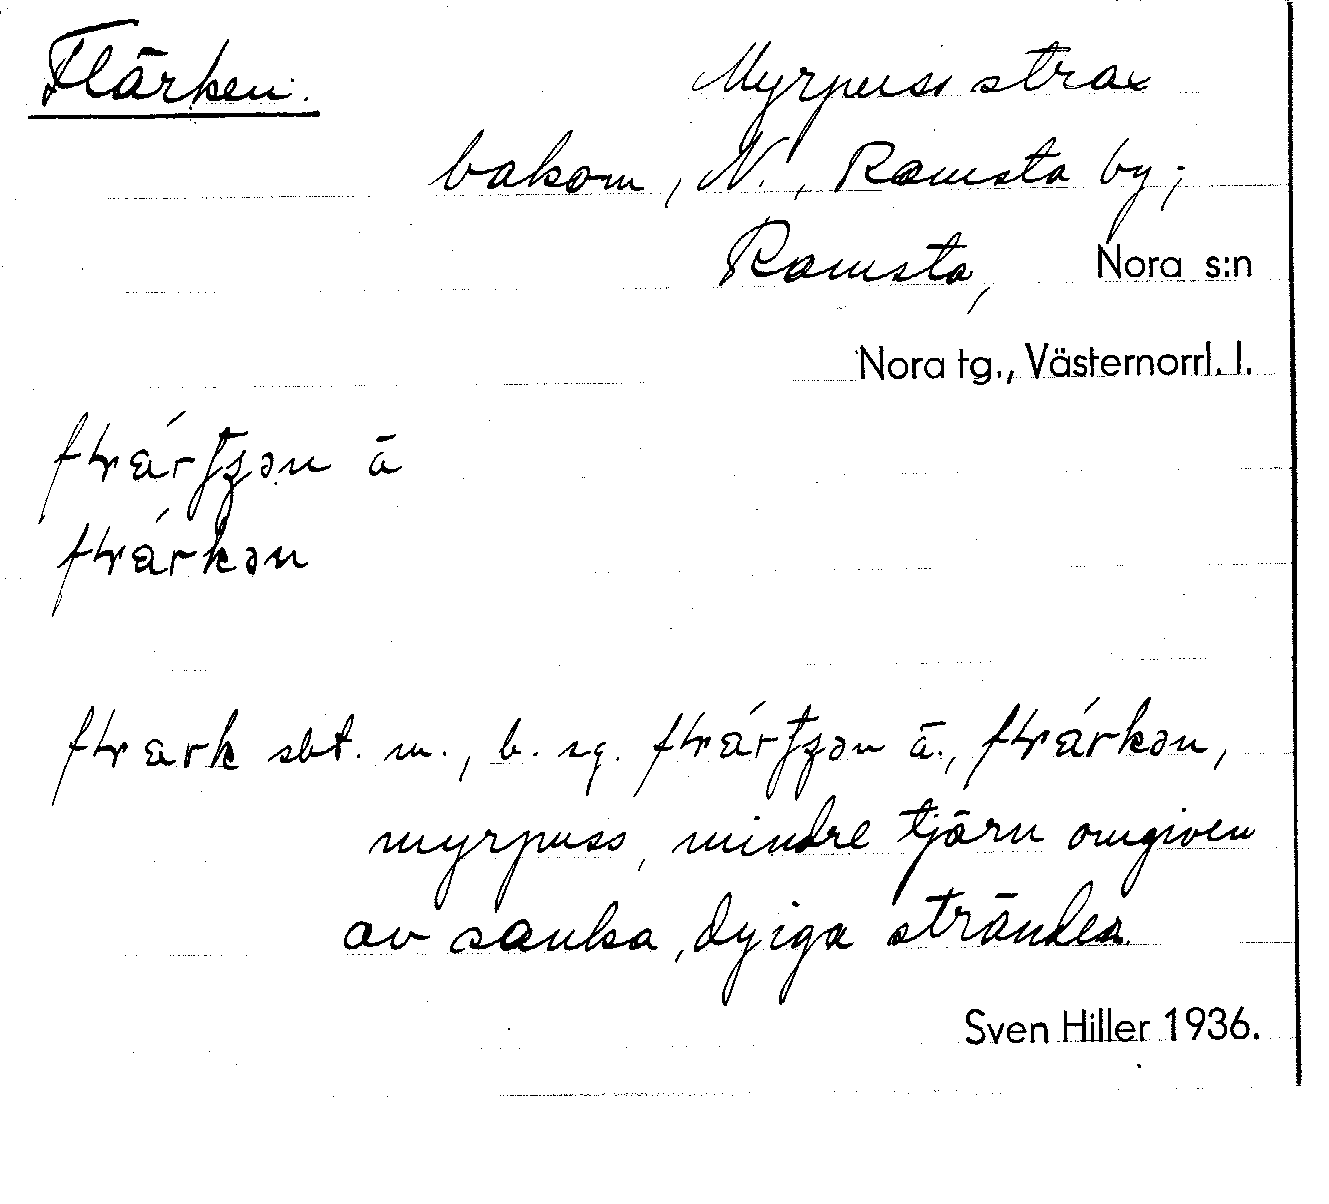 Flärken.
Myrpuss strax
bakom, N., Ramsta by;
Ramsta, Nora s:n
Nora tg., Västernorrl. l.
sbt. m., b. sg.
myrpuss, mindre tjärn omgiven
av sanka, dyiga stränder.
Sven Hiller 1936.